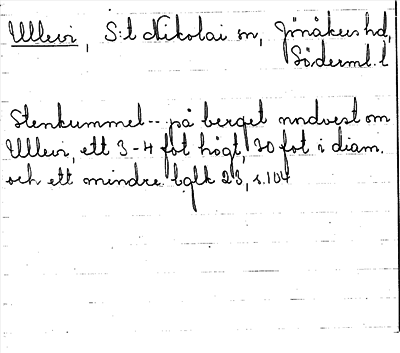 Ullevi, S:t Nikolai sn, Jönåkers hd,
Söderml. l
Stenkummel -- på berget nndvest om
Ullevi, ett 3-4 fot högt, 20 fot i diam.
och ett mindre bglk 23, s.104